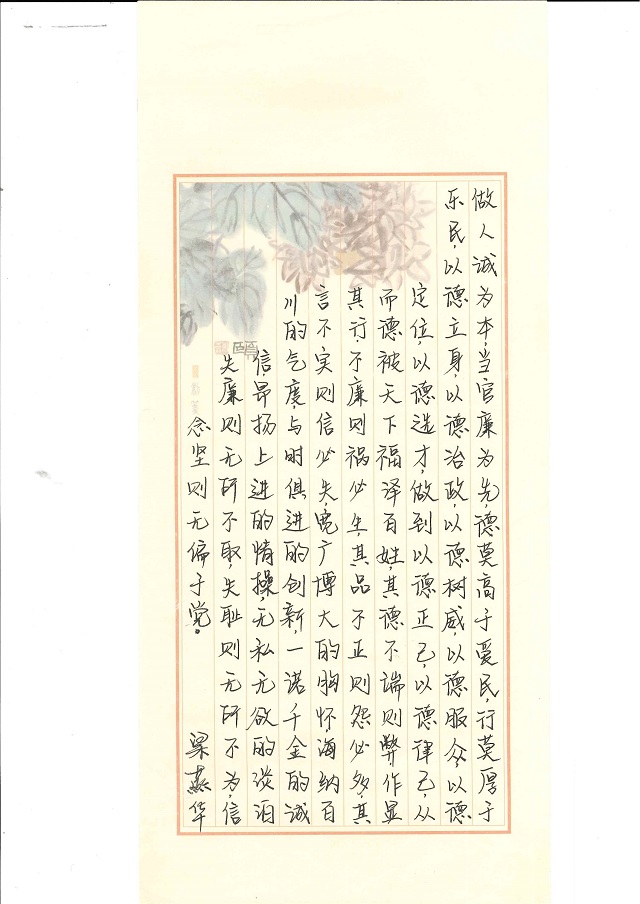 做人诚为本,当官廉为先,德莫高于爱民,行莫厚于
乐民,以德立身,以德治政,以德树威,以德服众,以德
定位以德选才,做到以德正己,以德律己,从
而德被天下福泽百姓,其德不端则弊作显
其行,不廉则祸必生,其品不正则怨必多,其
言不实则信必失,宽广博大的胸怀,海纳百
川的气度,与时俱进的创新,一诺千金的诚
信,昂扬上进的情操,无私无欲的淡泊
失廉则无所不取,失耻则无所不为,信
念坚则无偏于党。
梁燕华